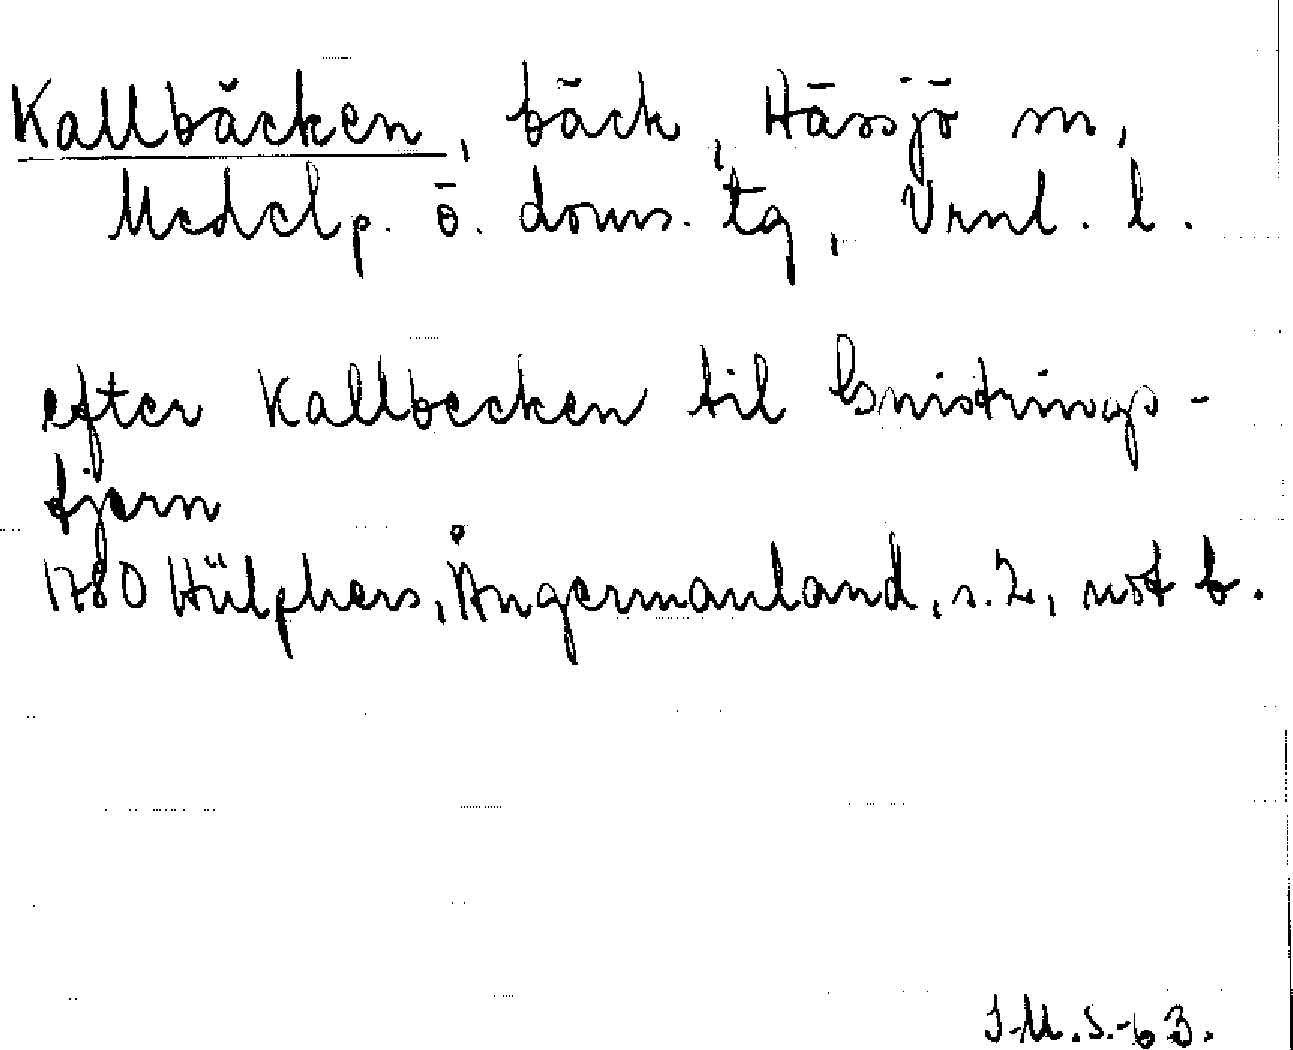 Kallbäcken, bäck, Hässjö sn,
Medelp. ö. doms. tg, Vrnl. l.
efter Kallbecken til Gnistrings-
tjern
1780 Hülphers, Ångermanland, s. 2, not b.
J.M.S.-63.